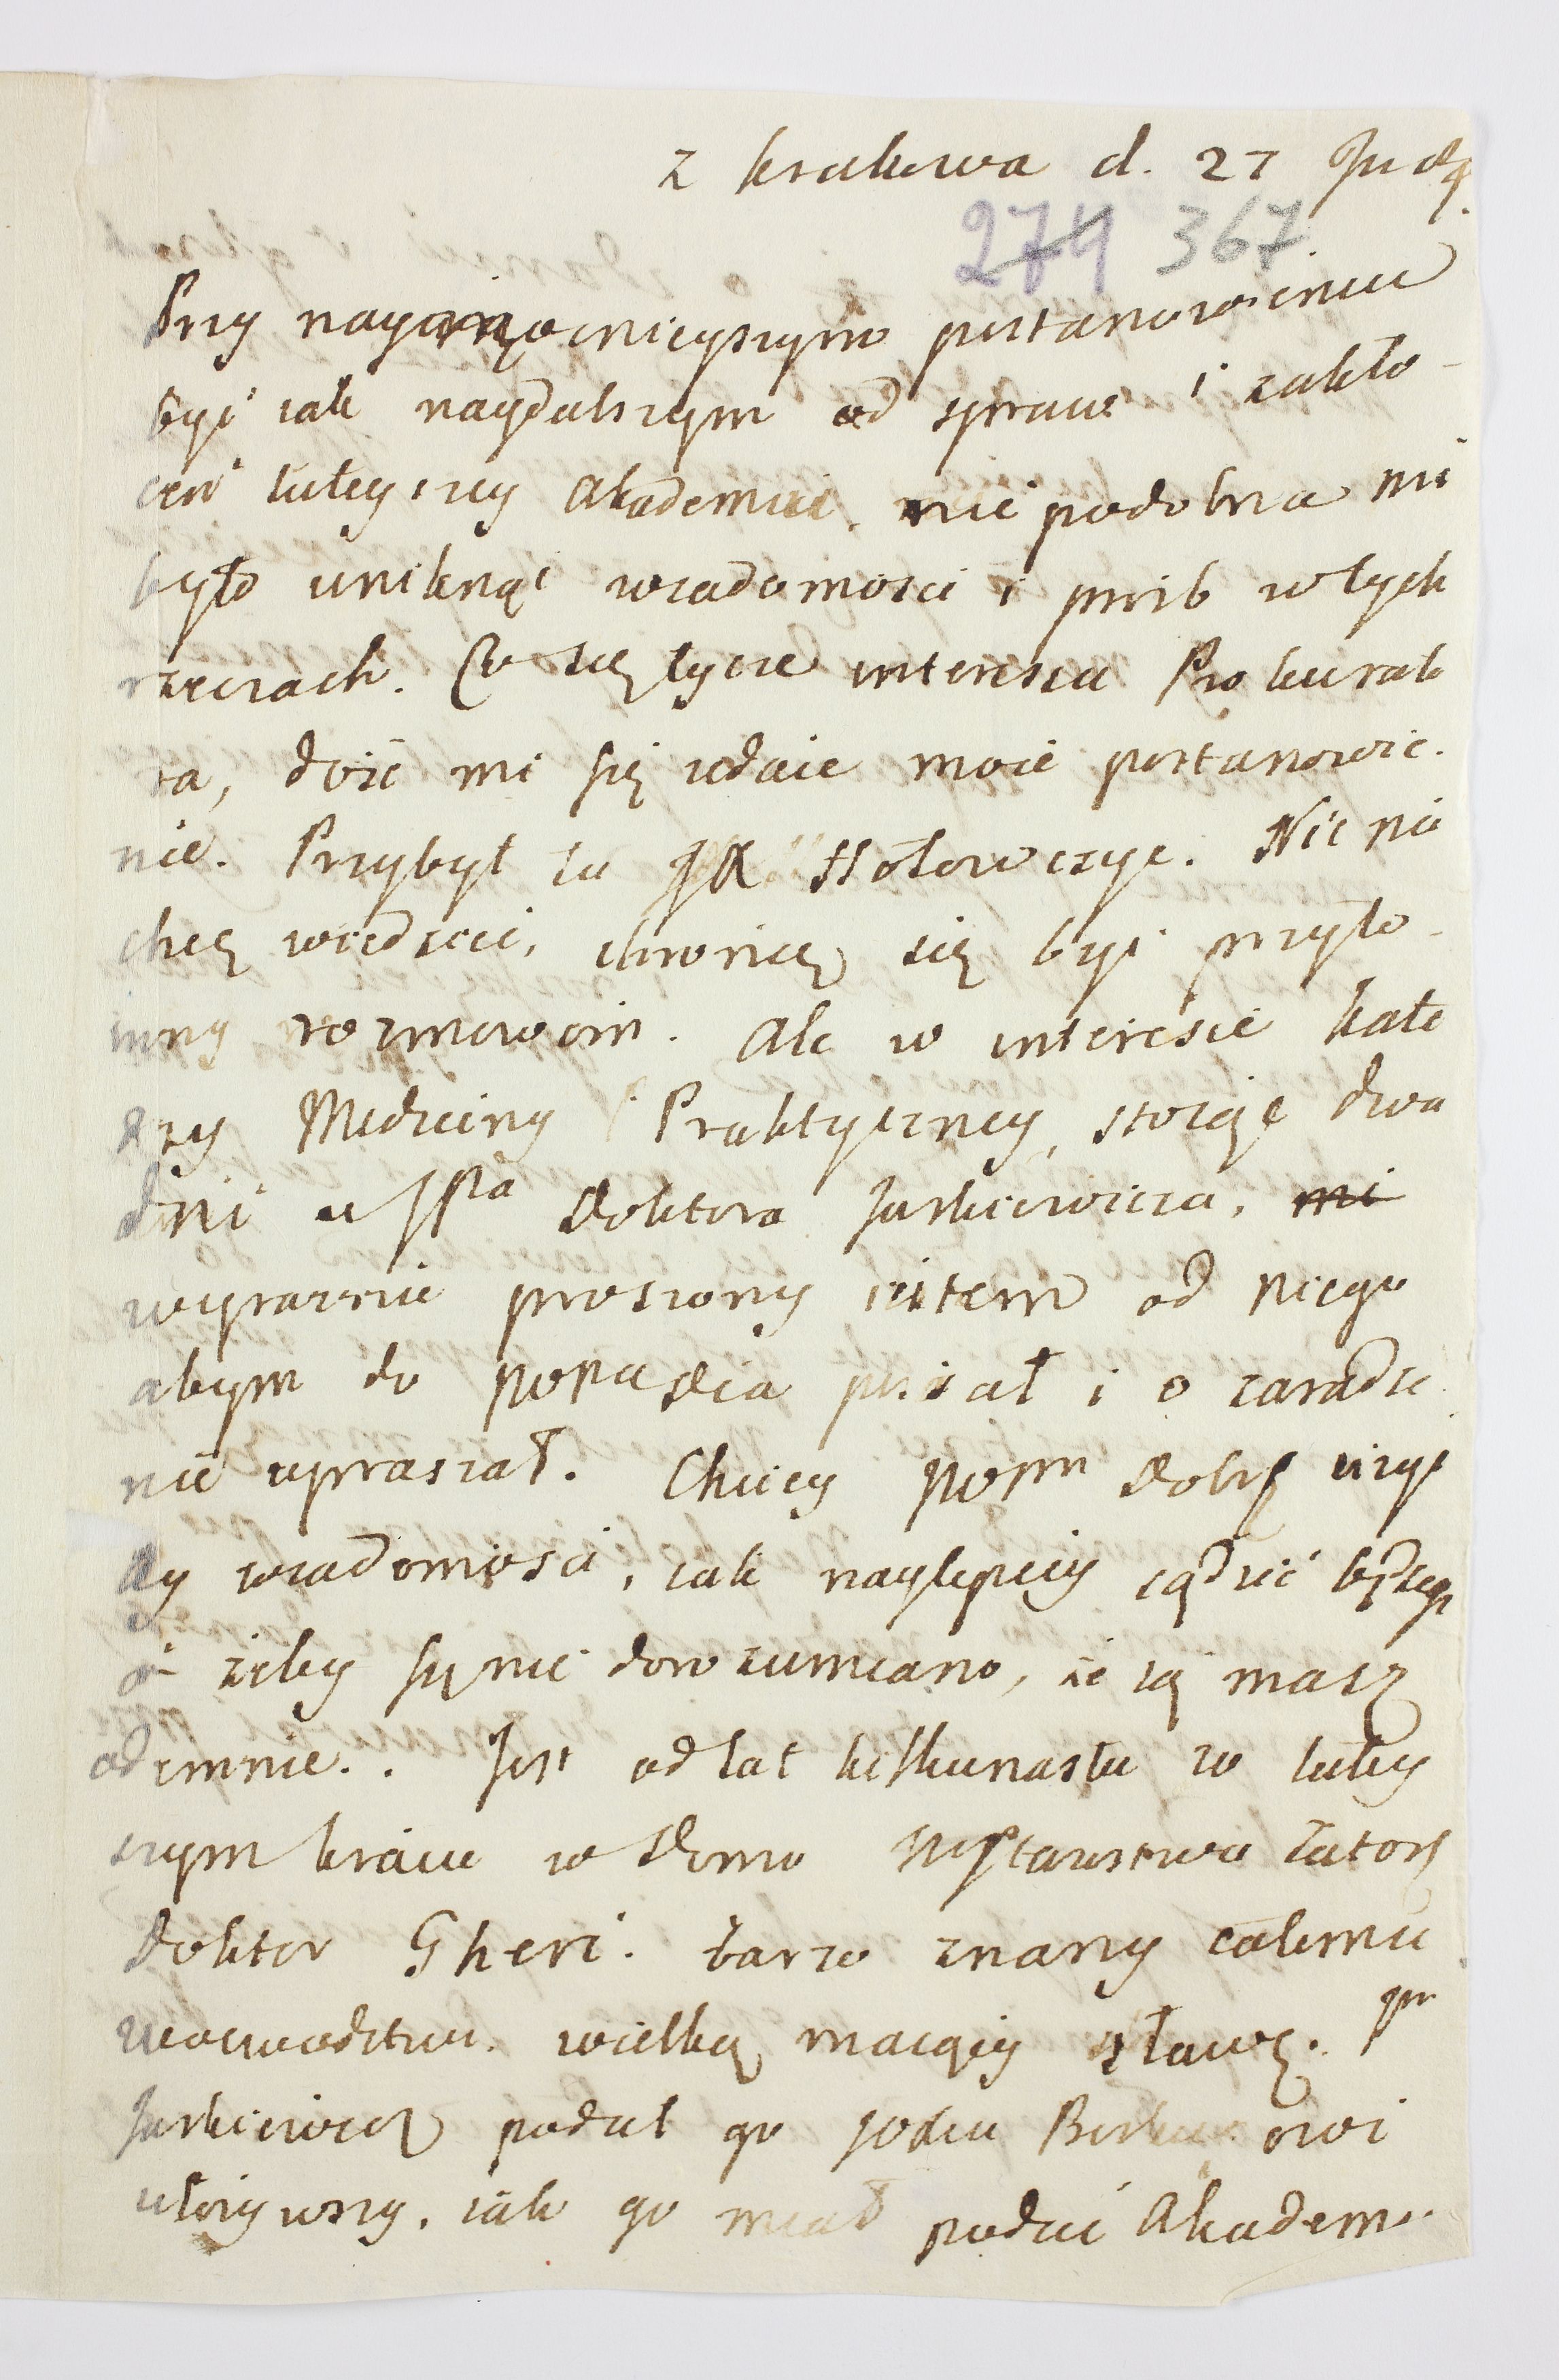 z krakowa d. 27
274 367
Przy nay mocnieyszym postanowieniu
być iak naydalszym od spraw i zakło-
ceń tuteyszey Akademii, nie podobna mi
było uniknąć wiadomości i prob w tych
rzeczach. Co się tycze interessu Prokurato
ra, dość mi się udaie moie postanowie-
nie. Przybył tu JX Hołowczyc. Nic nie
chcę wiedzieć, chronię się być przyto-
mny rozmowom. Ale w interesie kate
dry Mediciny Praktyczney, stoiąc dwa
dni u JPa Doktora Jaśkiewicza, mi
wyraznie proszony iestem od niego
abym do pisał i o zaradze
nie upraszał. Chciey Dobr użyć
tey wiadomości, iak naylepiey sądzić będziesz
a żeby się nie dorozumiano, że ią masz
odemnie.. Jest od lat kilkunastu w tutey
szym kraiu w domu
Doktor Gheri. barzo znany całemu
woiewodztwu. wielką maiący sławę. JPan
Jaśkiewicz podał go owi
ułożywszy, iak go miał podać Akadem